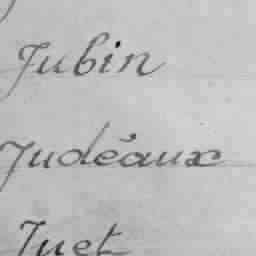 Jubin
Judéaux
Juet